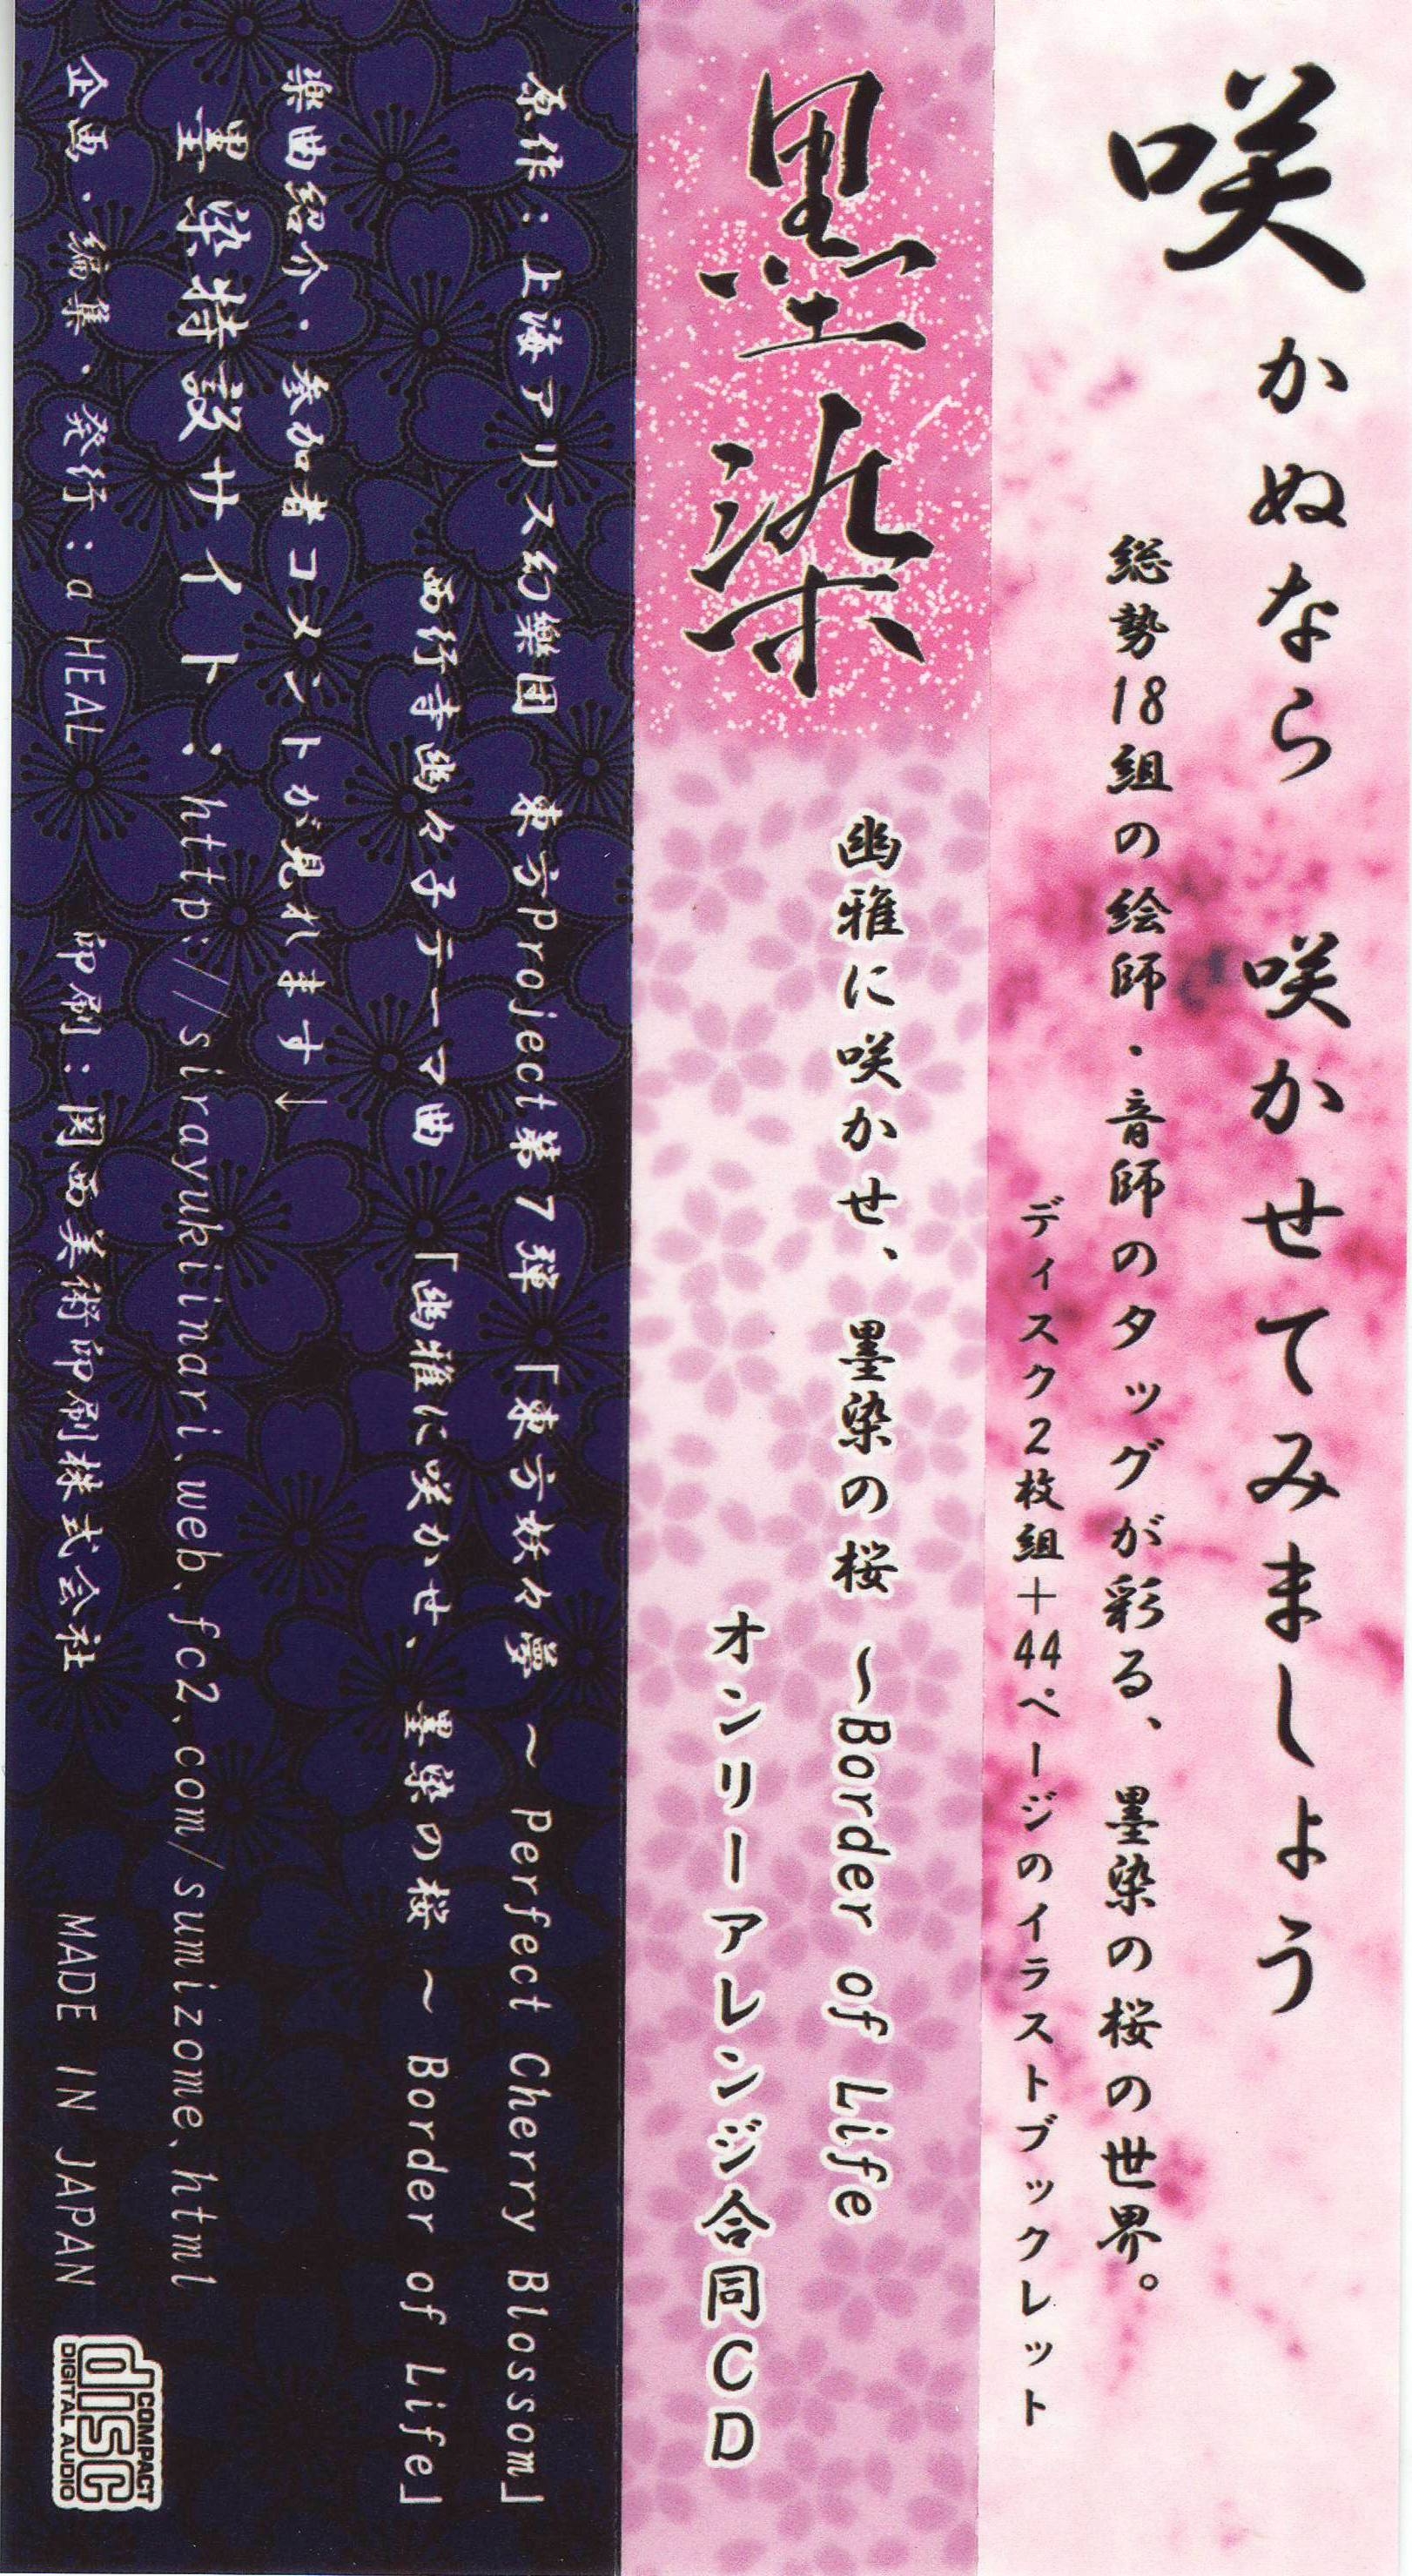 咲かぬなら 咲かせてみましょう
総勢18組の絵師・音師のタッグが彩る、墨染の桜の世界。
ディスク2枚組+44ページのイラストブックレット
墨染
幽雅に咲かせ、墨染の桜 ~Border of Life
オンリーアレンジ合同CD
原作:上海アリス幻樂団 東方Project第7弾「東方妖々夢 ~ Perfect Cherry Blossom」
西行寺幽々子テーマ曲「幽雅に咲かせ、墨染の桜 ~ Border of Life」
楽曲紹介・参加者コメントが見れます↓
墨染特設サイト:http://sirayukiinari.web.fc2.com/sumizome.html
企画・編集・発行:a HEAL 印刷:関西美術印刷株式会社 MADE IN JAPAN
COMPACT disc DIGITAL AUDIO